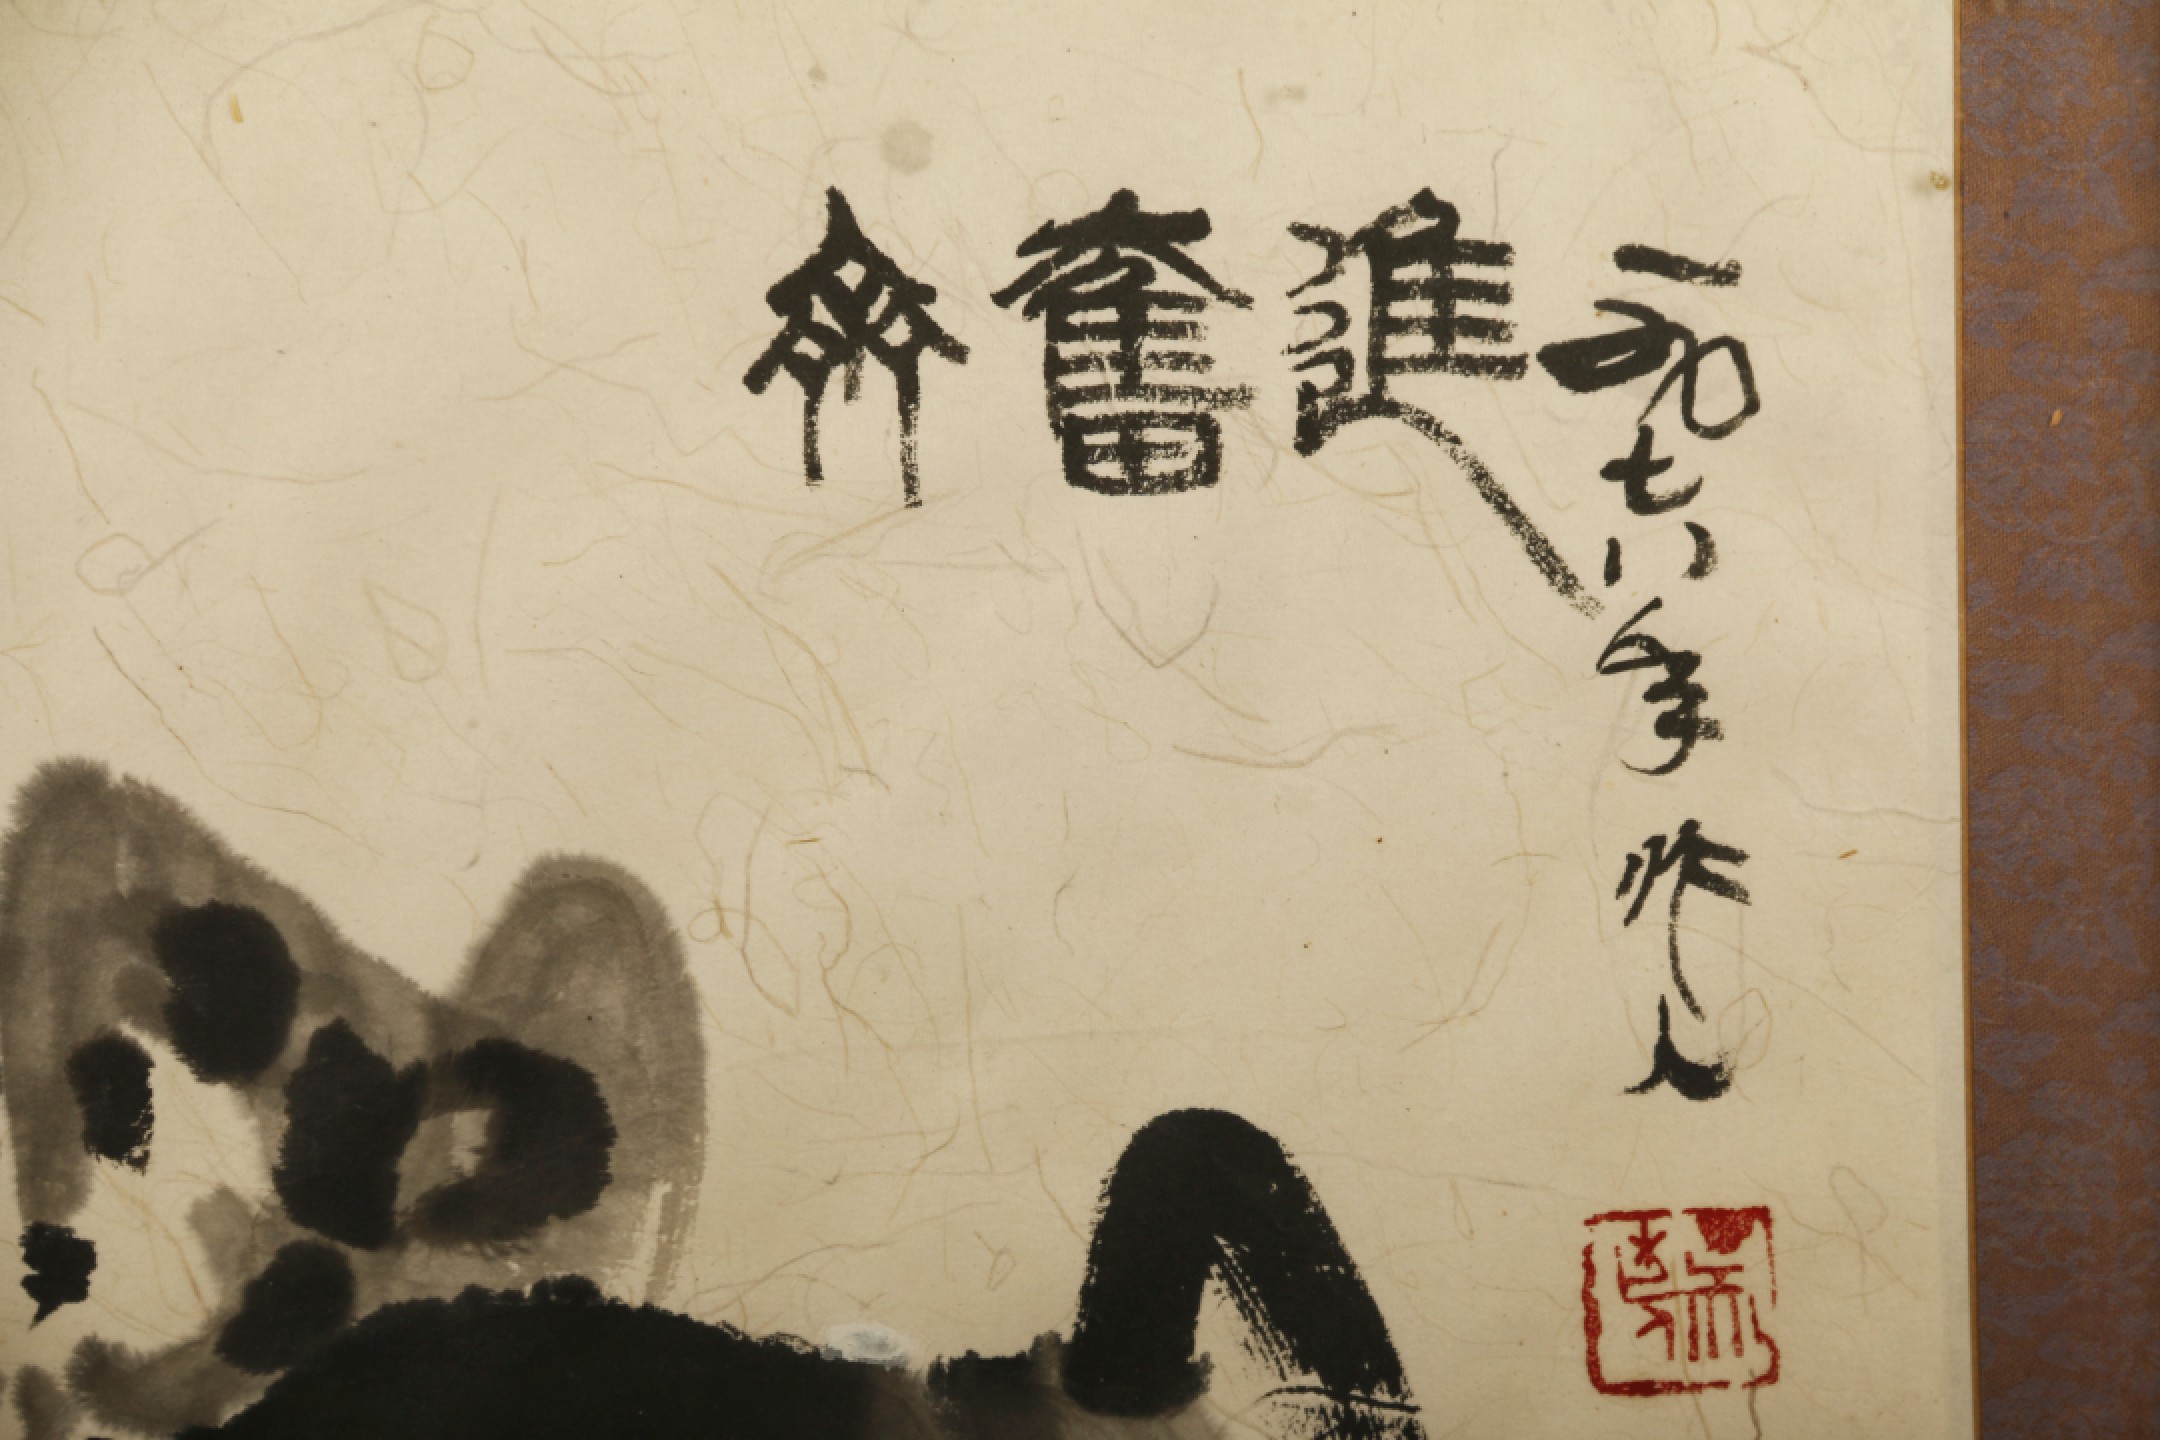 齊奮進
一九七八年 作人